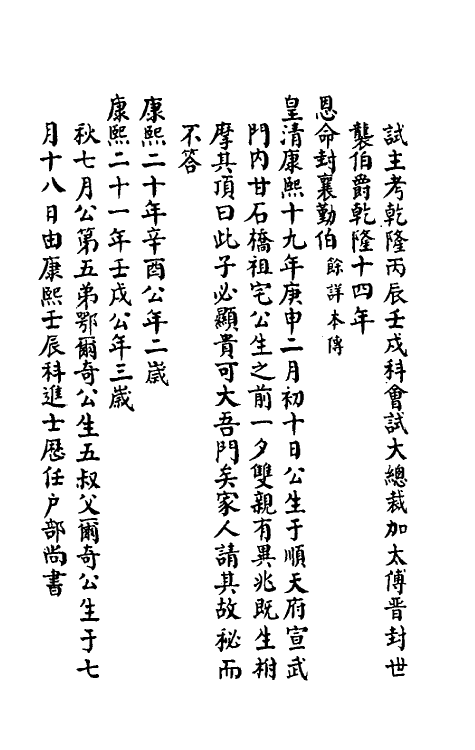 試主考乾隆丙辰壬戌科會試大總裁加太傅晉封世
襲伯爵乾隆十四年
恩命封襄勤伯餘詳本傳
皇清康熙十九年庚申二月初十日公生于順天府宣武
門內甘石橋祖宅公生之前一夕雙親有異兆既生拊
摩其頂曰此子必顯貴可大吾門矣家人請其故秘而
不答
康熙二十年辛酉公年二歲
康熙二十一年壬戌公年三歲
秋七月公第五弟鄂爾奇公生五叔父爾奇公生于七
月十八日由康熙壬辰科進士歷任戶部尚書